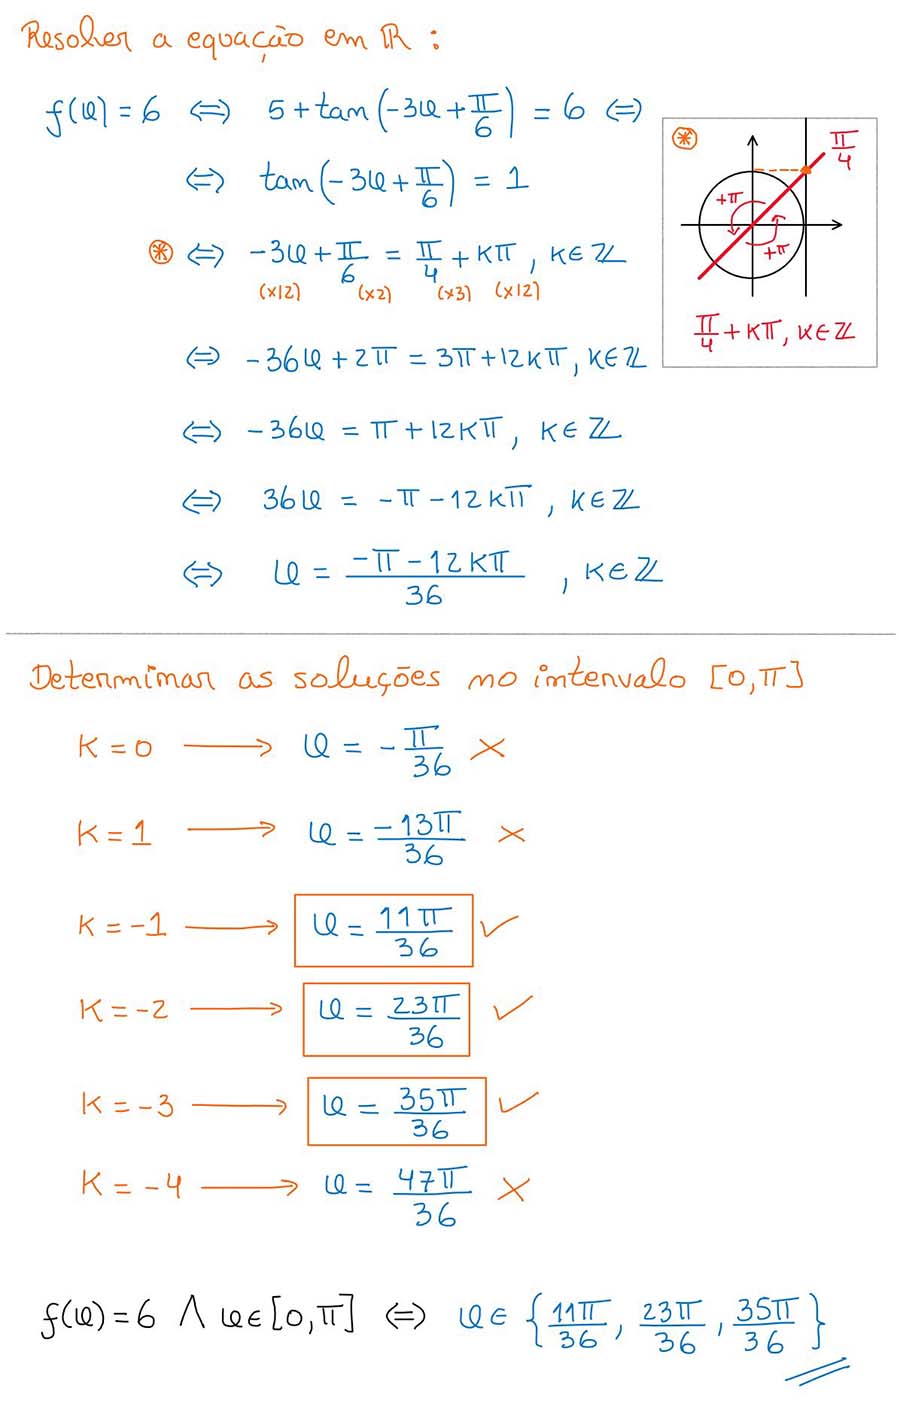 Resolver a equação em ℝ :
f(φ) = 6 ⇔ 5 + tan(-3φ + π/6) = 6 ⇔
⇔ tan(-3φ + π/6) = 1
⊛ ⇔ -3φ + π/6 = π/4 + kπ , k ∈ ℤ
(×12) (×2) (×3) (×12)
⇔ -36φ + 2π = 3π + 12kπ , k ∈ ℤ
⇔ -36φ = π + 12kπ , k ∈ ℤ
⇔ 36φ = -π - 12kπ , k ∈ ℤ
⇔ φ = (-π - 12kπ)/36 , k ∈ ℤ
⊛
π/4
+π
+π
π/4 + kπ, k ∈ ℤ
Determinar as soluções no intervalo [0,π]
k = 0 ⟶ φ = -π/36 ×
k = 1 ⟶ φ = -13π/36 ×
k = -1 ⟶ φ = 11π/36 ✓
k = -2 ⟶ φ = 23π/36 ✓
k = -3 ⟶ φ = 35π/36 ✓
k = -4 ⟶ φ = 47π/36 ×
f(φ) = 6 ∧ φ ∈ [0,π] ⇔ φ ∈ {11π/36, 23π/36, 35π/36}